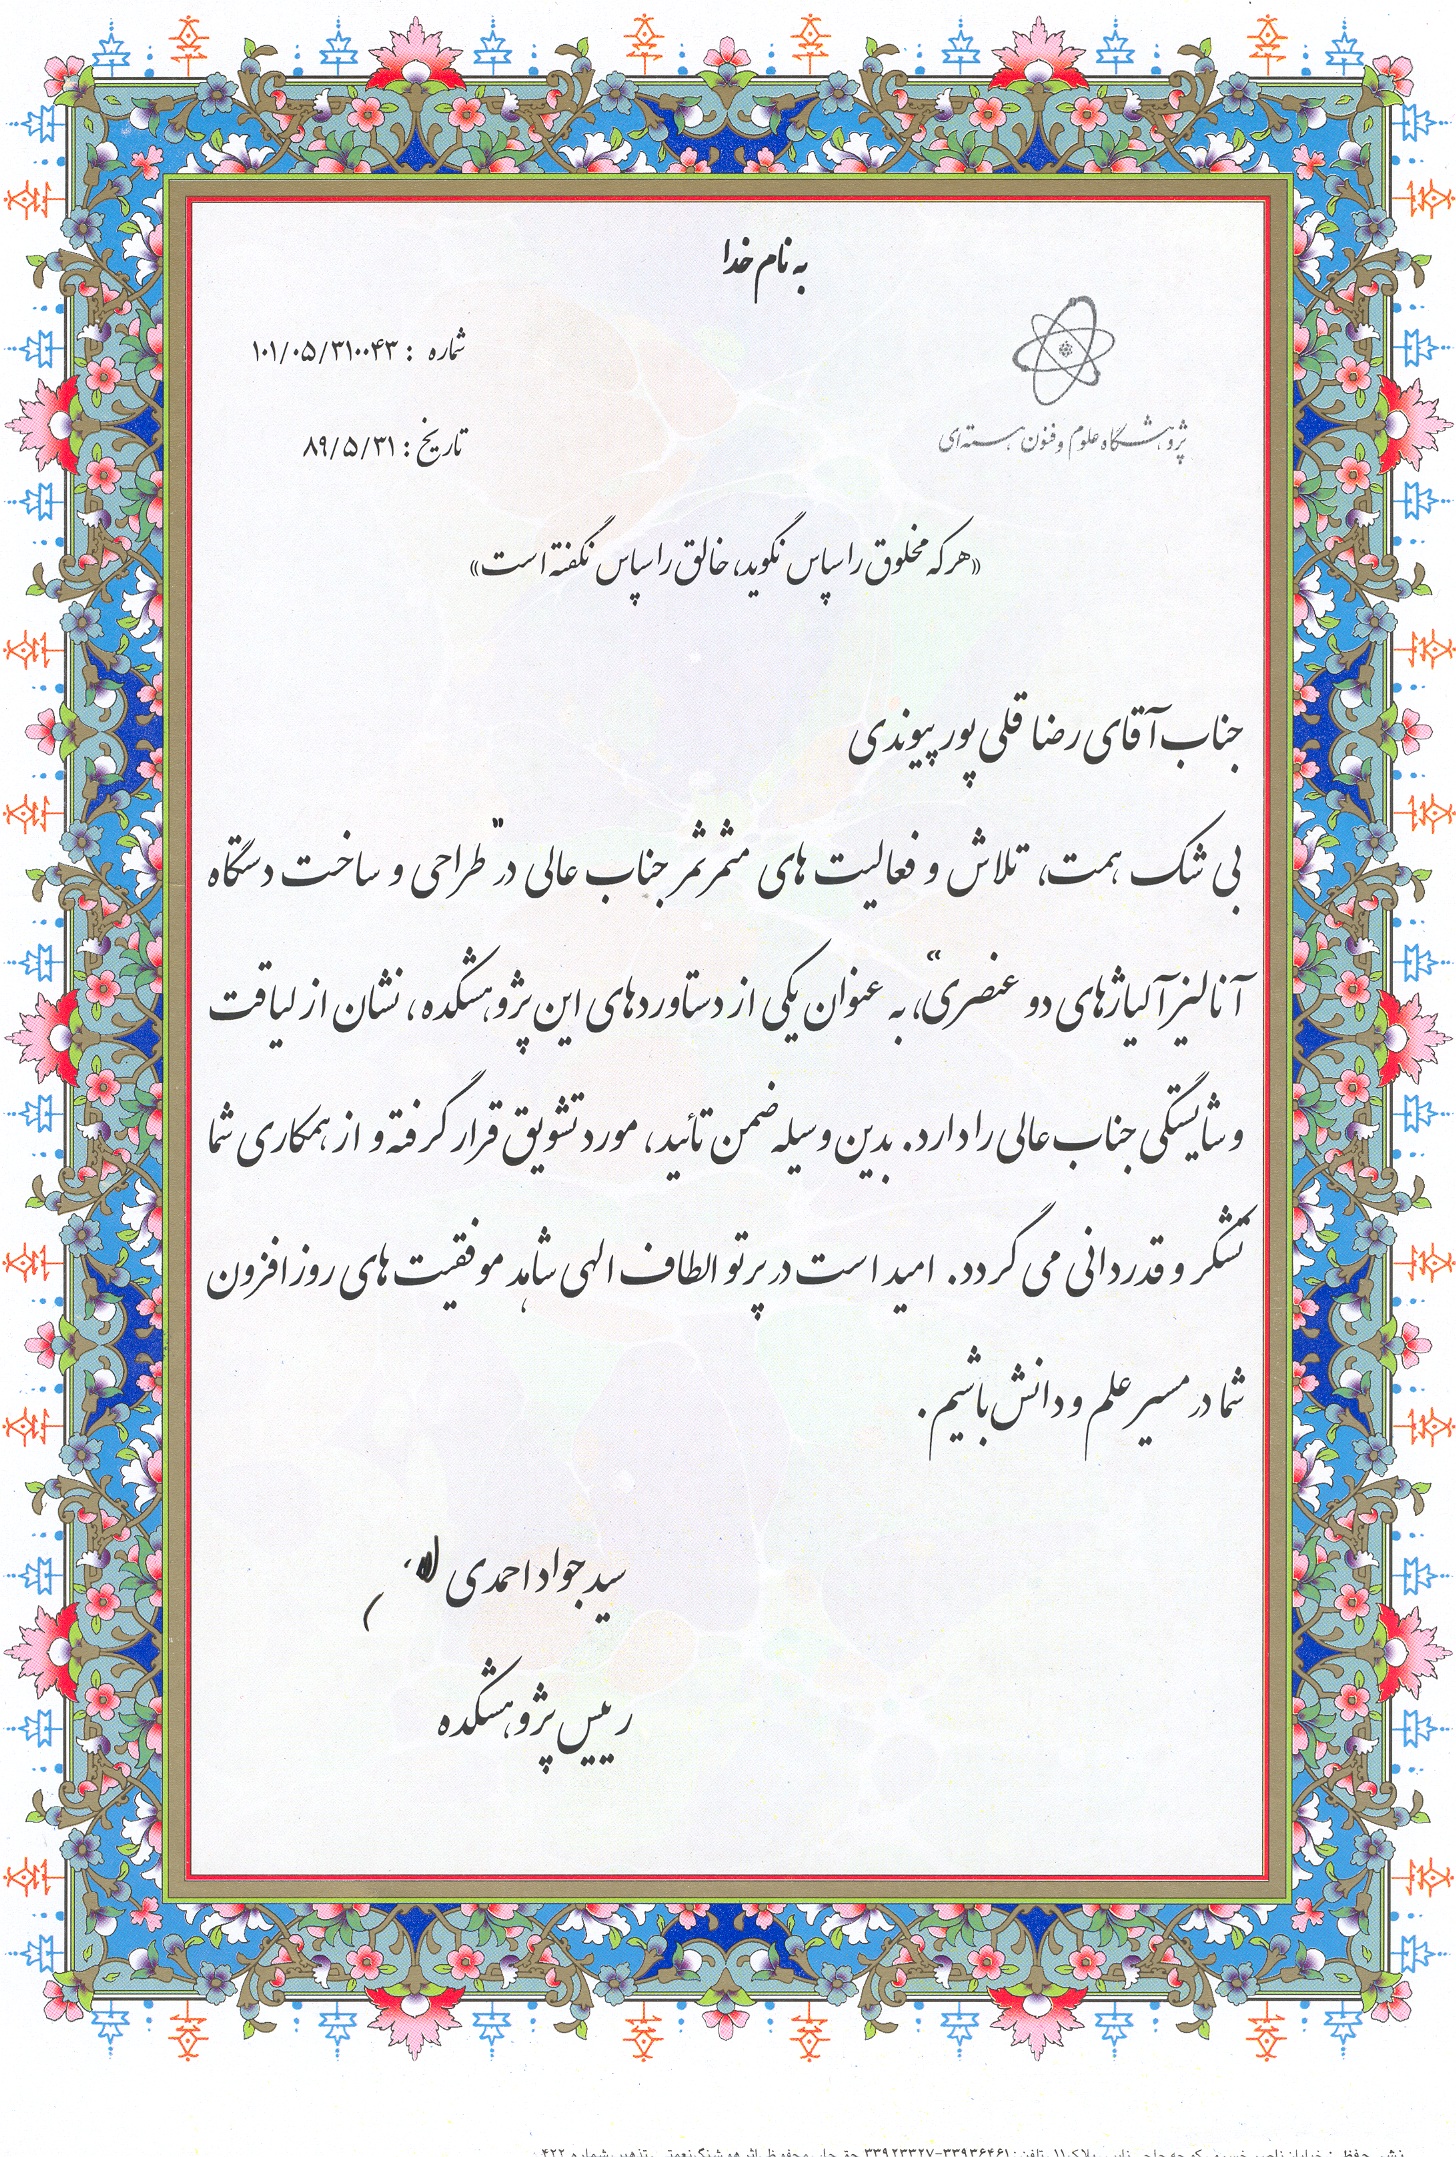 به نام خدا
شماره : ۱۰۱/۰۵/۳۱۰۰۴۳
پژوهشگاه علوم و فنون هسته‌ای
تاریخ : ۸۹/۵/۳۱
«هر که مخلوق را سپاس نگوید، خالق را سپاس نگفته است»
جناب آقای رضا قلی پور پیوندی
بی شک همت، تلاش و فعالیت های مثمرثمر جناب عالی در "طراحی و ساخت دستگاه
آنالیز آلیاژهای دو عنصری"، به عنوان یکی از دستاوردهای این پژوهشکده، نشان از لیاقت
و شایستگی جناب عالی را دارد. بدین وسیله ضمن تأئید، مورد تشویق قرار گرفته و از همکاری شما
تشکر و قدردانی می گردد. امید است در پرتو الطاف الهی شاهد موفقیت های روز افزون
شما در مسیر علم و دانش باشیم.
سید جواد احمدی
رییس پژوهشکده